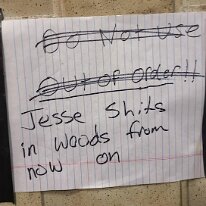 Do Not Use
Out of Order!!
Jesse Shits
in woods from
now on